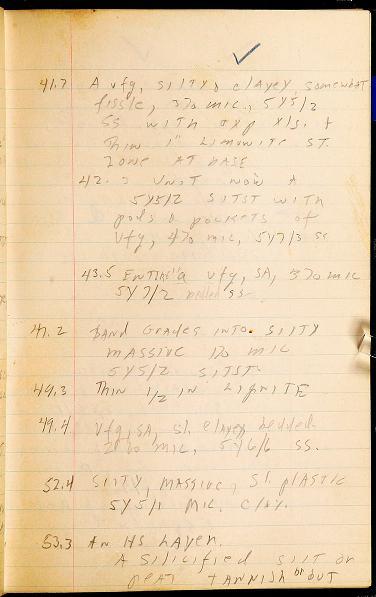 41.7 A vfg, silty & clayey, somewhat
fissle, 3% mic., 5Y5/2
SS with gyp xls. &
thin 1" limonite st.
zone at base
42. Unit now a
5Y5/2 sltst with
pods & pockets of
vfg, 4% mic, 5Y7/3 ss
43.5 Entirely a vfg, SA, 3% mic
5Y7/2 ss.
47.2 Band grades into silty
massive 1% mic
5Y5/2 sltst.
49.3 Thin 1/2 in lignite
49.4 vfg, SA, sl. clayey bedded
2% mic, 5Y6/6 ss.
52.4 silty, massive, sl. plastic
5Y5/1 mic. clay.
53.3 An HS layer.
A silicified silt or
peat tannish or out